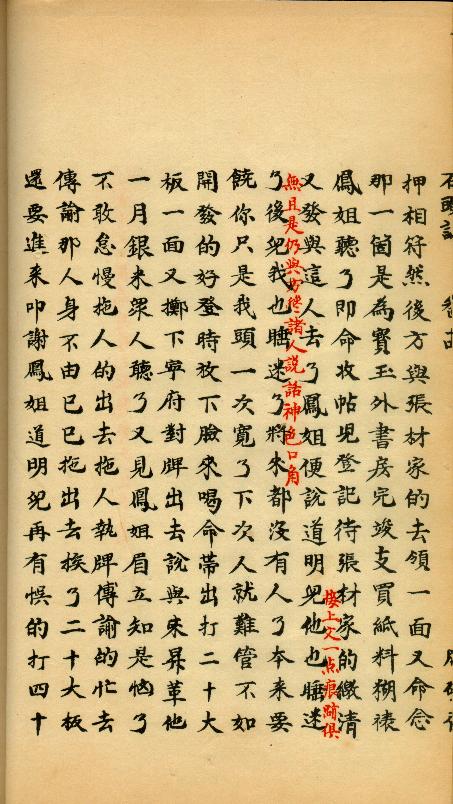 石頭記
押相符然後方與張材家的去領一面又命念
那一個是為寶玉外書房完竣支買紙料糊裱
鳳姐聽了即命收帖児登記待張材家的繳清
接上文一点痕跡俱
又發與這人去了鳳姐便說道明兒他也睡迷
無且是仍與方纔諸人説話神色口角
了後兒我也睡迷了將來都沒有人了本來要
饒你只是我頭一次寛了下次人就難管不如
開發的好登時放下臉來喝命帶出打二十大
板一面又擲下寧府對牌出去說與来昇革他
一月銀米眾人聽了又見鳳姐眉立知是恼了
不敢怠慢拖人的出去拖人執牌傳諭的忙去
傳諭那人身不由已已拖出去挨了二十大板
還要進來叩謝鳳姐道明兒再有悞的打四十